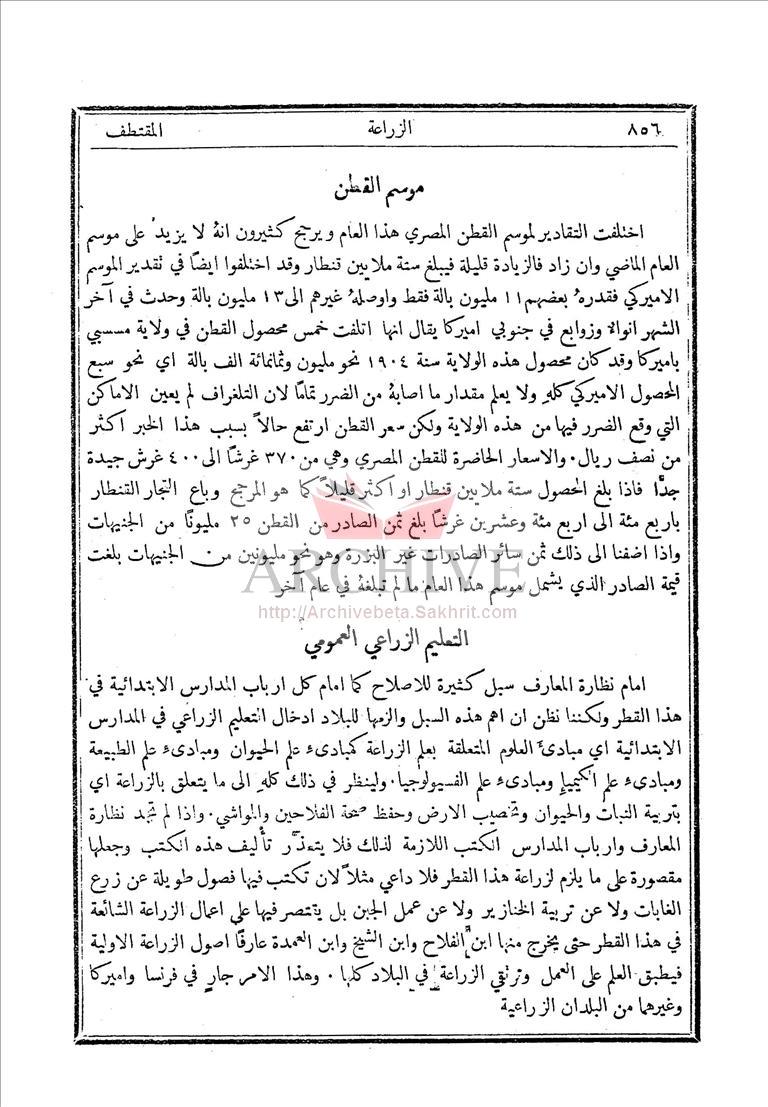 ٨٥٦ الزراعة المقتطف
موسم القطن
اختلفت التقادير لموسم القطن المصري هذا العام ويرجح كثيرون انهُ لا يزيد على موسم
العام الماضي وان زاد فالزيادة قليلة فيبلغ ستة ملايين قنطار وقد اختلفوا ايضاً في تقدير الموسم
الاميركي فقدرهُ بعضهم ١١ مليون بالة فقط واوصلهُ غيرهم الى ١٣ مليون بالة وحدث في آخر
الشهر انوالا وزوابع في جنوبي اميركا يقال انها اتلفت خمس محصول القطن في ولاية مسسبي
باميركا وقد كان محصول هذه الولاية سنة ١٩٠٤ نحو مليون وثمانمائة الف بالة اي نحو سبع
المحصول الاميركي كلهِ ولا يعلم مقدار ما اصابهُ من الضرر تماماً لان التلغراف لم يعين الاماكن
التي وقع الضرر فيها من هذه الولاية ولكن سعر القطن ارتفع حالاً بسبب هذا الخبر اكثر
من نصف ريال. والاسعار الحاضرة للقطن المصري وهي من ٣٧٠ غرشاً الى ٤٠٠ غرش جيدة
جداً فاذا بلغ المحصول ستة ملايين قنطار او اكثر قليلاً كما هو المرجح وباع التجار القنطار
باربع مئة الى اربع مئة وعشرين غرشاً بلغ ثمن الصادر من القطن ٢٥ مليوناً من الجنيهات
واذا اضفنا الى ذلك ثمن سائر الصادرات غير البزرة وهو نحو مليونين من الجنيهات بلغت
قيمة الصادر الذي يشمل موسم هذا العام ما لم تبلغهُ في عام آخر
ARCHIVE
http://Archivebeta.Sakhrit.com
التعليم الزراعي العمومي
امام نظارة المعارف سبل كثيرة للاصلاح كما امام كل ارباب المدارس الابتدائية في
هذا القطر ولكننا نظن ان اهم هذه السبل والزمها للبلاد ادخال التعليم الزراعي في المدارس
الابتدائية اي مبادئ العلوم المتعلقة بعلم الزراعة كمبادىء علم الحيوان ومبادىء علم الطبيعة
ومبادىء علم الكيمياء ومبادىء علم الفسيولوجيا. ولينظر في ذلك كلهِ الى ما يتعلق بالزراعة اي
بتربية النبات والحيوان وتخصيب الارض وحفظ صحة الفلاحين والمواشي. واذا لم تجد نظارة
المعارف وارباب المدارس الكتب اللازمة لذلك فلا يتعذر تأليف هذه الكتب وجعلها
مقصورة على ما يلزم لزراعة هذا القطر فلا داعي مثلاً لان تكتب فيها فصول طويلة عن زرع
الغابات ولا عن تربية الخنازير ولا عن عمل الجبن بل يقتصر فيها على اعمال الزراعة الشائعة
في هذا القطر حتى يخرج منها ابن الفلاح وابن الشيخ وابن العمدة عارفاً اصول الزراعة الاولية
فيطبق العلم على العمل وترتقي الزراعة في البلاد كلها . وهذا الامر جارٍ في فرنسا واميركا
وغيرهما من البلدان الزراعية